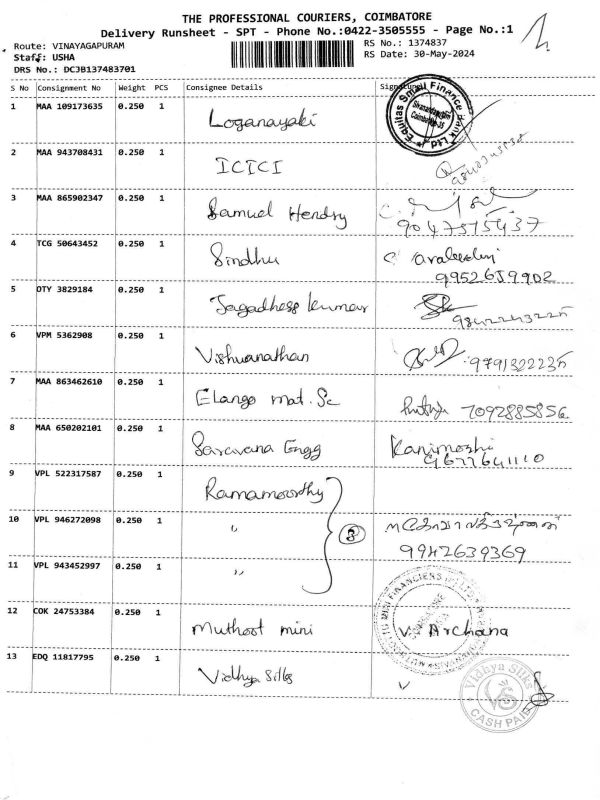 THE PROFESSIONAL COURIERS, COIMBATORE
Delivery Runsheet - SPT - Phone No.:0422-3505555 - Page No.:1
Route: VINAYAGAPURAM
RS No.: 1374837
Staff: USHA
RS Date: 30-May-2024
DRS No.: DC3B137483701
S No Consignment No Weight PCS Consignee Details Signature
1 MAA 109173635 0.250 1 Loganayaki
Equitas Small Finance Bank Ltd
2 MAA 943708431 0.250 1 ICICI
3 MAA 865902347 0.250 1 Samuel Hendry
9047575437
4 TCG 50643452 0.250 1 Sindhu
9952659902
5 OTY 3829184 0.250 1 Jagadhess kumar
6 VPM 5362908 0.250 1 Vishwanathan 9791322235
7 MAA 863462610 0.250 1 Elango mat. Sc 7092885856
8 MAA 650202101 0.250 1 Saravana Engg Kanimozhi
9677641110
9 VPL 522317587 0.250 1 Ramamoorthy
10 VPL 946272098 0.250 1 " 3
9942639369
11 VPL 943452997 0.250 1 "
12 COK 24753384 0.250 1 Muthoot mini V. Archana
13 EDQ 11817795 0.250 1 Vidhya Silks
Vidhya Silks
VS
CASH PAID